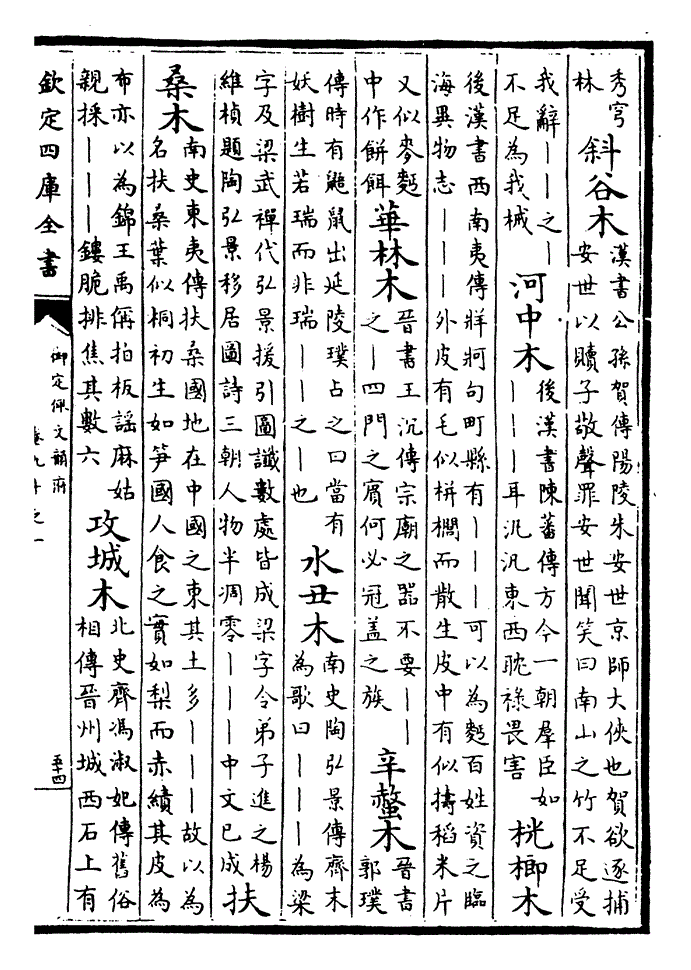 秀穹
林
斜谷木
漢書公孫賀傳陽陵朱安世京師大俠也賀欲逐捕
安世以贖子敬聲罪安世聞笑曰南山之竹不足受
我辭――之―
不足為我械
河中木
後漢書陳蕃傳方今一朝羣臣如
―――耳汎汎東西耽祿畏害
桄榔木
後漢書西南夷傳牂牁句町縣有―――可以為麪百姓資之臨
海異物志―――外皮有毛似栟櫚而散生皮中有似擣稻米片
又似麥麪
中作餅餌
華林木
晉書王沉傳宗廟之器不要――
之―四門之賓何必冠盖之族
辛螯木
晉書
郭璞
傳時有鼯鼠出延陵璞占之曰當有
妖樹生若瑞而非瑞――之―也
水丑木
南史陶弘景傳齊末
為歌曰―――為梁
字及梁武禪代弘景援引圖讖數處皆成梁字令弟子進之楊
維楨題陶弘景移居圖詩三朝人物半凋零―――中文已成
扶
桑木
南史東夷傳扶桑國地在中國之東其土多―――故以為
名扶桑葉似桐初生如笋國人食之實如梨而赤績其皮為
布亦以為錦王禹偁拍板謡麻姑
親採―――鏤脆排焦其數六
攻城木
北史齊馮淑妃傳舊俗
相傳晉州城西石上有
欽定四庫全書
御定佩文韻府
卷九十之一
五十四